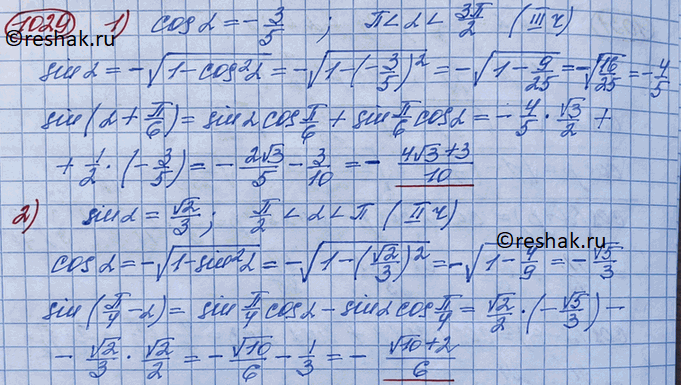 1029 1) cos α = -3/5 ; π < α < 3π/2 (III ч)
©reshak.ru
sin α = -√(1-cos²α) = -√(1-(-3/5)²) = -√(1-9/25) = -√(16/25) = -4/5
sin(α + π/6) = sin α cos π/6 + sin π/6 cos α = -4/5 · √3/2 +
+ 1/2 · (-3/5) = -2√3/5 - 3/10 = - (4√3+3)/10
2) sin α = √2/3 ; π/2 < α < π (II ч)
©reshak.ru
cos α = -√(1-sin²α) = -√(1-(√2/3)²) = -√(1-4/9) = -√5/3
sin(π/4 - α) = sin π/4 cos α - sin α cos π/4 = √2/2 · (-√5/3) -
- √2/3 · √2/2 = -√10/6 - 1/3 = - (√10+2)/6
©reshak.ru